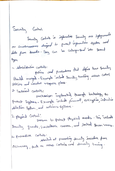 Security Controls
Security Controls in Information Security are safeguards
or countermeasures designed to protect information systems and
data from threats. They can be categorized into several
types.
1. Administrative Controls:
Policies and procedures that define how Security
should managed. Examples include Security training,
policies and incident response plans.
2. Technical Controls:
Mechanisms implemented through technology to
protect systems. Examples include firewall, encryption, intrusion
detection systems and antivirus.
3. Physical Controls:
Measures to protect physical assets. This include
Security guards, surveillance cameras and locked server rooms.
4. Preventive Controls:
aimed at preventing security incidents from
occurring, such as access controls and security